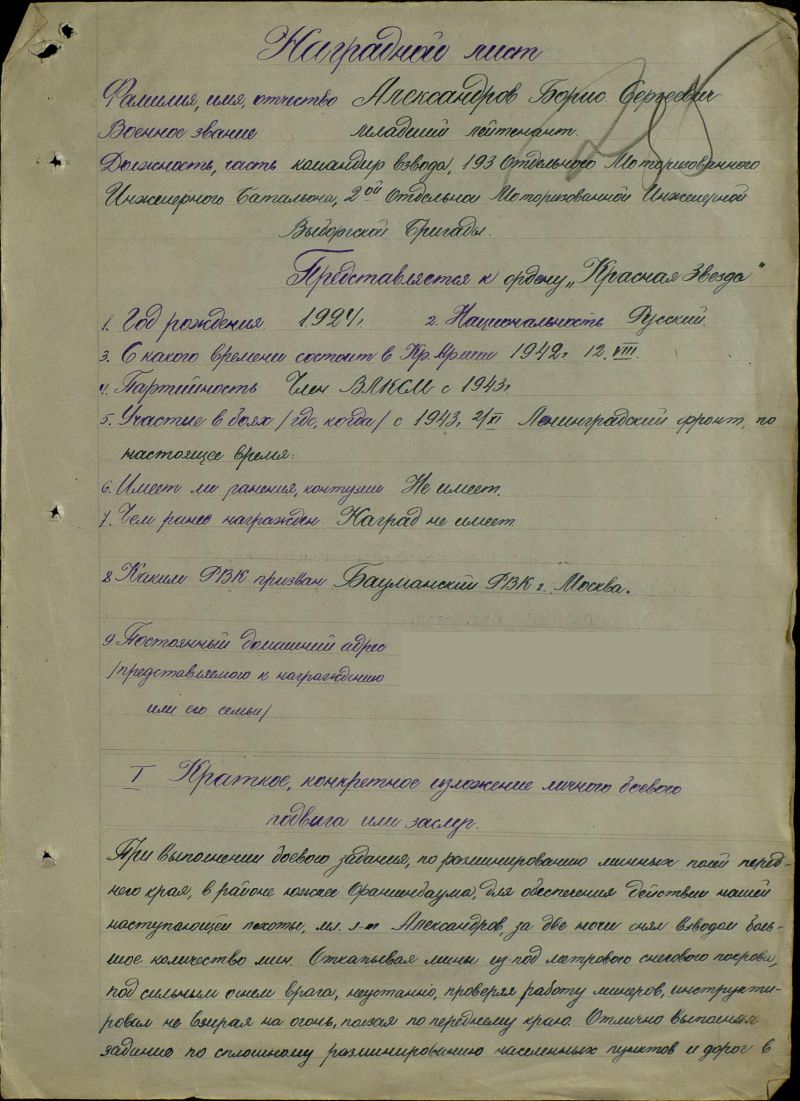 Наградной лист
Фамилия, имя, отчество Александров Борис Сергеевич
Военное звание младший лейтенант.
Должность, часть командир взвода, 193 Отдельного Моторизованного
Инженерного Батальона, 2ой Отдельной Моторизованной Инженерной
Выборгской Бригады.
Представляется к ордену „Красная Звезда"
1. Год рождения 1924г. 2. Национальность Русский.
3. С какого времени состоит в Кр. Армии 1942г. 12. VIII.
4. Партийность Член ВЛКСМ с 1943г.
5. Участие в боях /где, когда/ с 1943г. 2/XI Ленинградский фронт, по
настоящее время.
6. Имеет ли ранения, контузии Не имеет.
7. Чем ранее награжден Наград не имеет
8 Каким РВК призван Бауманский РВК г. Москва.
9 Постоянный домашний адрес
/представляемого к награждению
или его семьи/
I Краткое, конкретное изложение личного боевого
подвига или заслуг.
При выполнении боевого задания, по разминированию минных полей перед-
него края, в районе южнее Ораниенбаума, для обеспечения действий нашей
наступающей пехоты, мл. л-т Александров, за две ночи снял взводом боль-
шое количество мин. Откапывая мины из-под метрового снегового покрова,
под сильным огнем врага, неустанно, проверял работу минеров, инструкти-
ровал не взирая на огонь, ползая по переднему краю. Отлично выполнил
задание по сплошному разминированию населенных пунктов и дорог в